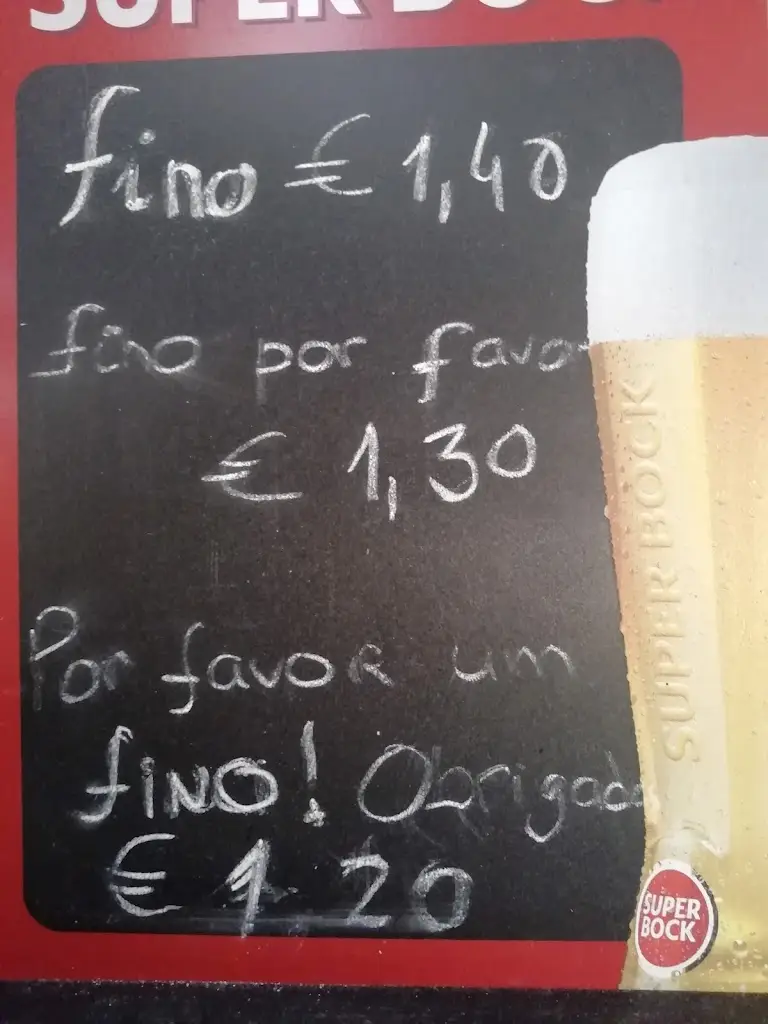 SUPER BOCK
fino € 1,40
fino por favor
€ 1,30
Por favor um
fino! Obrigado
€ 1,20
SUPER BOCK
SUPER
BOCK